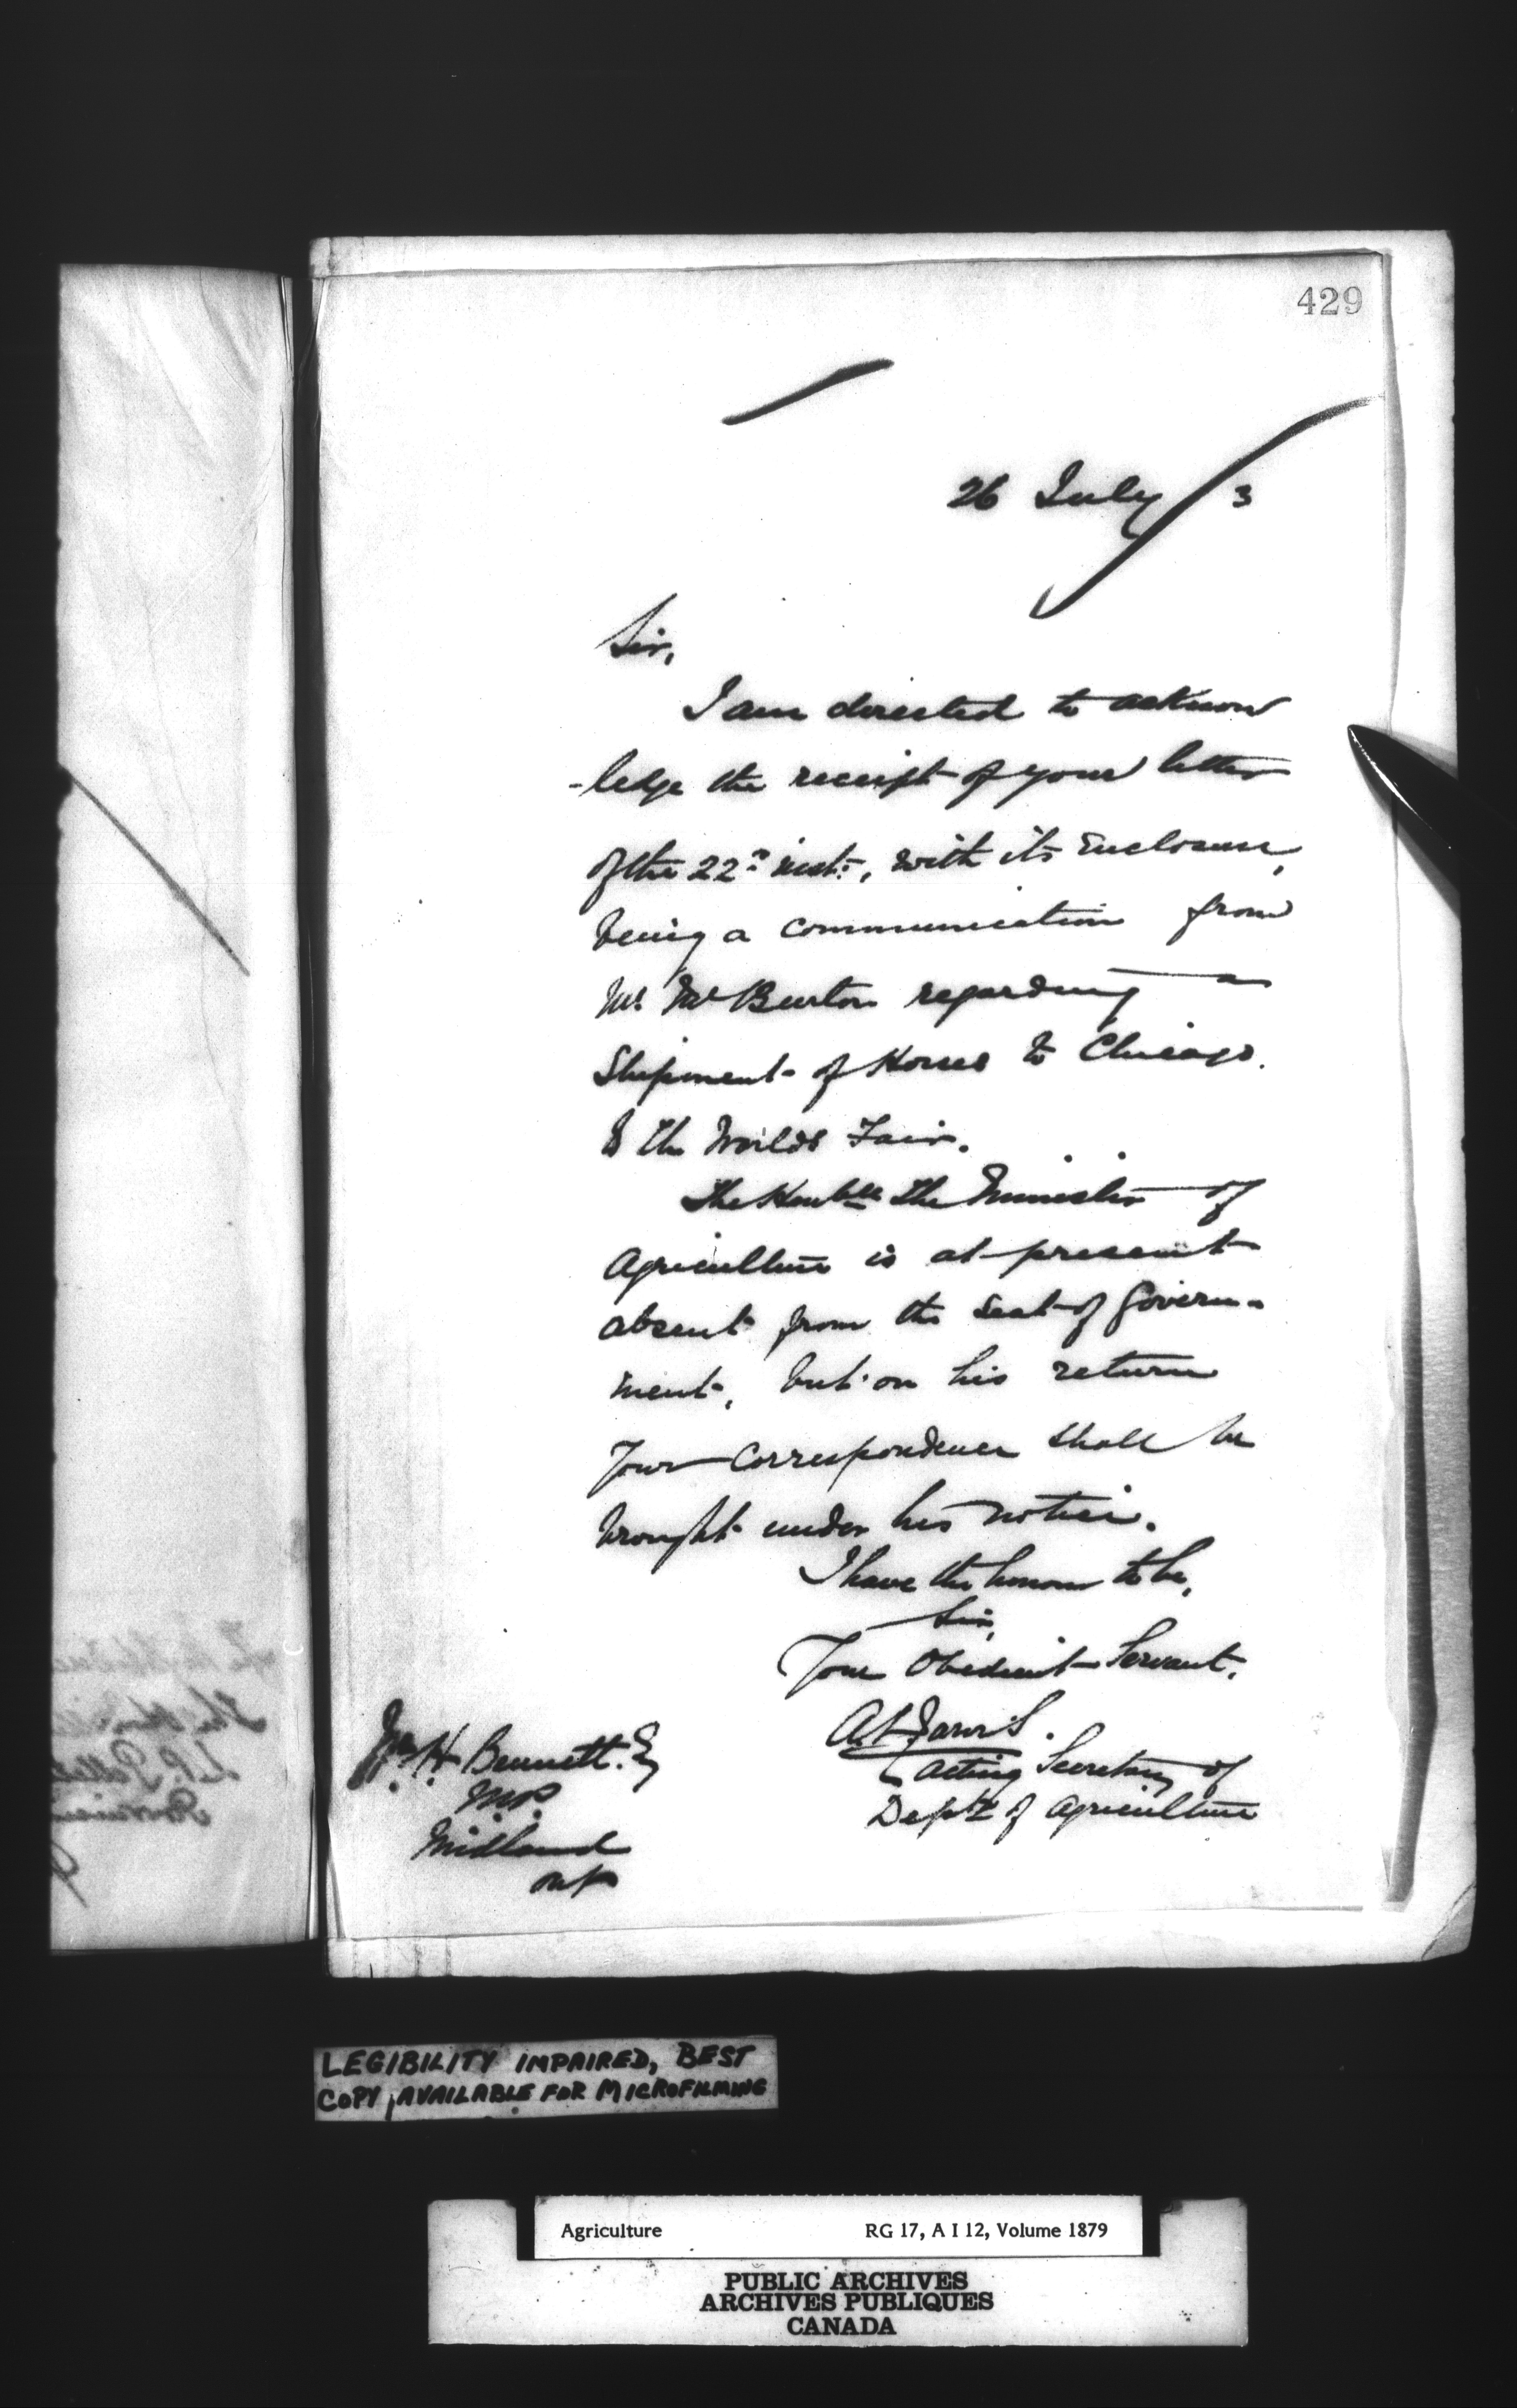 429
26 July 3
Sir,
I am directed to acknow
-ledge the receipt of your letter
of the 22nd inst:, with its Enclosure,
being a communication from
Mr McBurton regarding a
Shipment of Horses to Chicago.
to the Worlds Fair.
The Honble The Minister of
Agriculture is at present
absent from the Seat of Govern-
ment, but on his return
Your Correspondence shall be
brought under his notice.
I have the honour to be,
Sir,
Your Obedient Servant.
Jarvis.
Acting Secretary of
Dept of Agriculture
H. Bennett. Esq
M.P.
Midland
Ont
LEGIBILITY IMPAIRED, BEST
COPY AVAILABLE FOR MICROFILMING
Agriculture RG 17, A I 12, Volume 1879
PUBLIC ARCHIVES
ARCHIVES PUBLIQUES
CANADA